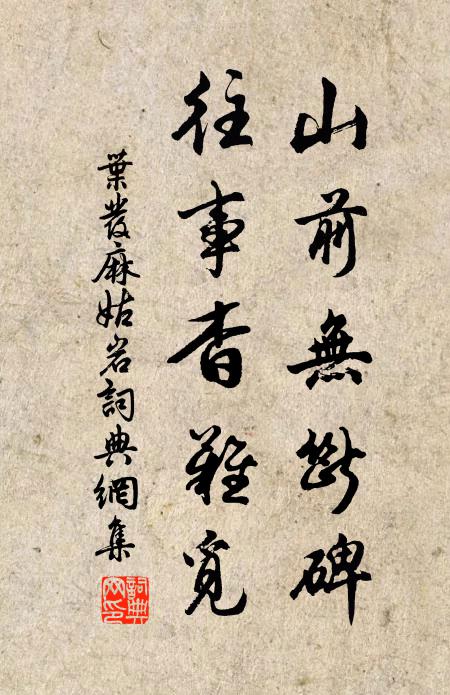 山前無斷碑
往事杳難覓
葉發麻姑岩詞典網集
詞典網印